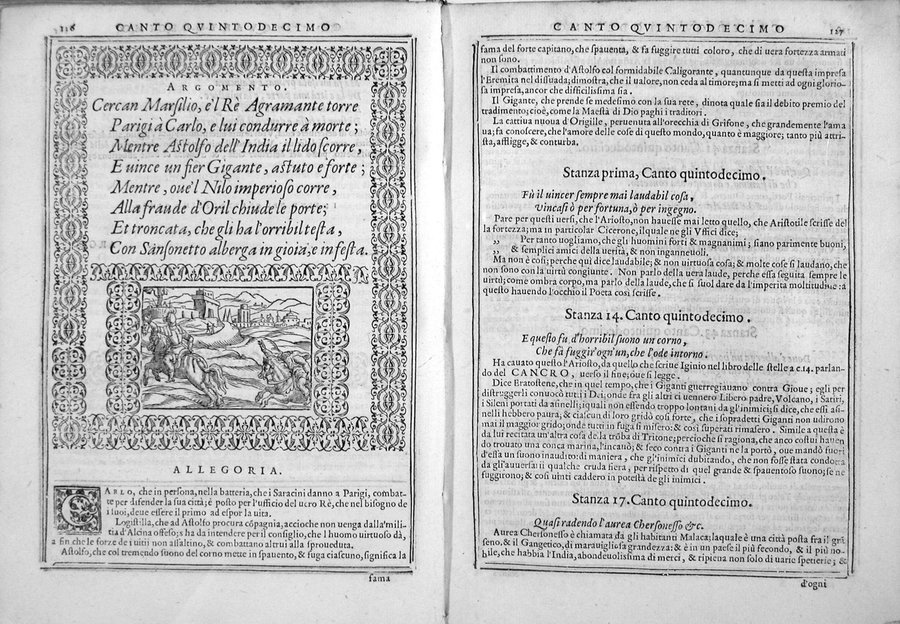 116
CANTO QVINTODECIMO
ARGOMENTO.
Cercan Marsilio, e'l Rè Agramante torre
Parigi à Carlo, e lui condurre à morte;
Mentre Astolfo dell'India il lido scorre,
E uince un fier Gigante, astuto e forte;
Mentre, oue'l Nilo imperioso corre,
Alla fraude d'Oril chiude le porte;
Et troncata, che gli ha l'orribil testa,
Con Sansonetto alberga in gioia, e in festa.
ALLEGORIA.
CARLO, che in persona, nella batteria, che i Saracini danno a Parigi, combat-
te per difender la sua città; è posto per l'ufficio del uero Rè, che nel bisogno de
i suoi, deue essere il primo ad espor la uita.
Logistilla, che ad Astolfo procura cōpagnia, accioche non uenga dalla mili-
tia d'Alcina offeso; s'ha da intendere per il consiglio, che l'huomo uirtuoso dà,
a fin che le forze de i uitij non assaltino, & combattano altrui alla sproueduta.
Astolfo, che col tremendo suono del corno mette in spauento, & fuga ciascuno, significa la
fama
CANTO QVINTODECIMO
127
fama del forte capitano, che spauenta, & fa fuggire tutti coloro, che di uera fortezza armati
non sono.
Il combattimento d'Astolfo col formidabile Caligorante, quantunque da questa impresa
l'Eremita nel dissuada; dimostra, che il ualore, non ceda al timore; ma si metti ad ogni glorio-
sa impresa, ancor che difficilissima sia.
Il Gigante, che prende se medesimo con la sua rete, dinota quale sia il debito premio del
tradimento; cioè, come la Maestà di Dio paghi i traditori.
La cattiua nuoua d'Origille, peruenuta all'orecchia di Grifone, che grandemente l'ama
ua; fa conoscere, che l'amore delle cose di questo mondo, quanto è maggiore; tanto più attri-
sta, affligge, & conturba.
Stanza prima, Canto quintodecimo.
Fù il uincer sempre mai laudabil cosa,
Vincasi ò per fortuna, ò per ingegno.
Pare per questi uersi, che l'Ariosto, non hauesse mai letto quello, che Aristotile scrisse del
la fortezza; ma in particolar Cicerone, il quale ne gli Vffici dice;
„ Per tanto uogliamo, che gli huomini forti & magnanimi, siano parimente buoni,
„ & semplici amici della uerità, & non ingannеuoli.
Ma non è così; perche qui dice laudabile; & non uirtuosa cosa; & molte cose si laudano, che
non sono con la uirtù congiunte. Non parlo della uera laude, perche essa seguita sempre le
uirtù; come ombra corpo, ma parlo della laude, che si suol dare da l'imperita moltitudine: a
questo hauendo l'occhio il Poeta così scrisse.
Stanza 14. Canto quintodecimo.
E questo fu d'horribil suono un corno,
Che fà fuggir'ogn'un, che l'ode intorno.
Ha cauato questo l'Ariosto, da quello che scriue Iginio nel libro delle stelle a c. 14. parlan-
do del CANCRO, uerso il fine; oue si legge.
Dice Eratostene, che in quel tempo, che i Giganti guerregiauano contra Gioue; egli per
distruggerli conuocò tutti i Dei; onde fra gli altri ci uennero Libero padre, Volcano, i Satiri,
i Sileni portati da asinelli; i quali non essendo troppo lontani da gl'inimici; si dice, che essi asi-
nelli hebbero paura; & ciascun di loro gridò così forte, che i sopradetti Giganti non udirono
mai il maggior grido; onde tutti in fuga si misero: & così superati rimasero. Simile a questa è
da lui recitata un'altra cosa de la trōba di Tritone; percioche si ragiona, che anco costui hauen
do trouato una conca marina, l'incauò; & seco contra i Giganti ne la portò, oue mandò fuori
d'essa un suono inaudito: di maniera, che gl'inimici dubitando, che non fosse stata condotta
da gli auuersarii qualche cruda fiera; per rispetto di quel grande & spauentoso suono; se ne
fuggirono; & così uinti caddero in potestà de gl'inimici.
Stanza 17. Canto quintodecimo.
Quasi radendo l'aurea Chersonesso &c.
Aurea Chersonesso è chiamata da gli habitanti Malaca; laquale è una città posta fra il grā
seno, & il Gangetico, di marauigliosa grandezza: & è in un paese il più secondo, & il più no-
bile, che habbia l'India, abondeuolissima di merci, & ripiena non solo di uarie spetierie; &
d'ogni